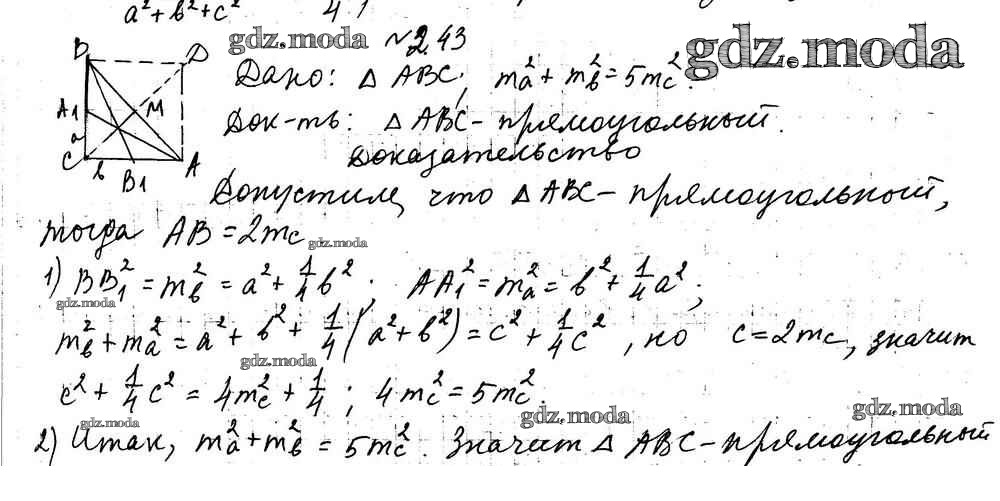 a² + b² + c²
4
B D
gdz.moda №2.43 gdz.moda
Дано: △ABC; mₐ² + m_b² = 5m_c².
A₁ M
Док-ть: △ABC - прямоугольный.
a
C b B₁ A
Доказательство
Допустим, что △ABC - прямоугольный,
тогда AB = 2m_c gdz.moda
1) BB₁² = m_b² = a² + 1/4 b²; AA₁² = mₐ² = b² + 1/4 a²;
gdz.moda
m_b² + mₐ² = a² + b² + 1/4 (a² + b²) = c² + 1/4 c², но c = 2m_c, значит
gdz.moda
c² + 1/4 c² = 4m_c² + 1/4; 4m_c² = 5m_c².
gdz.moda gdz.moda gdz.moda
2) Итак, mₐ² + m_b² = 5m_c². Значит △ABC - прямоугольный